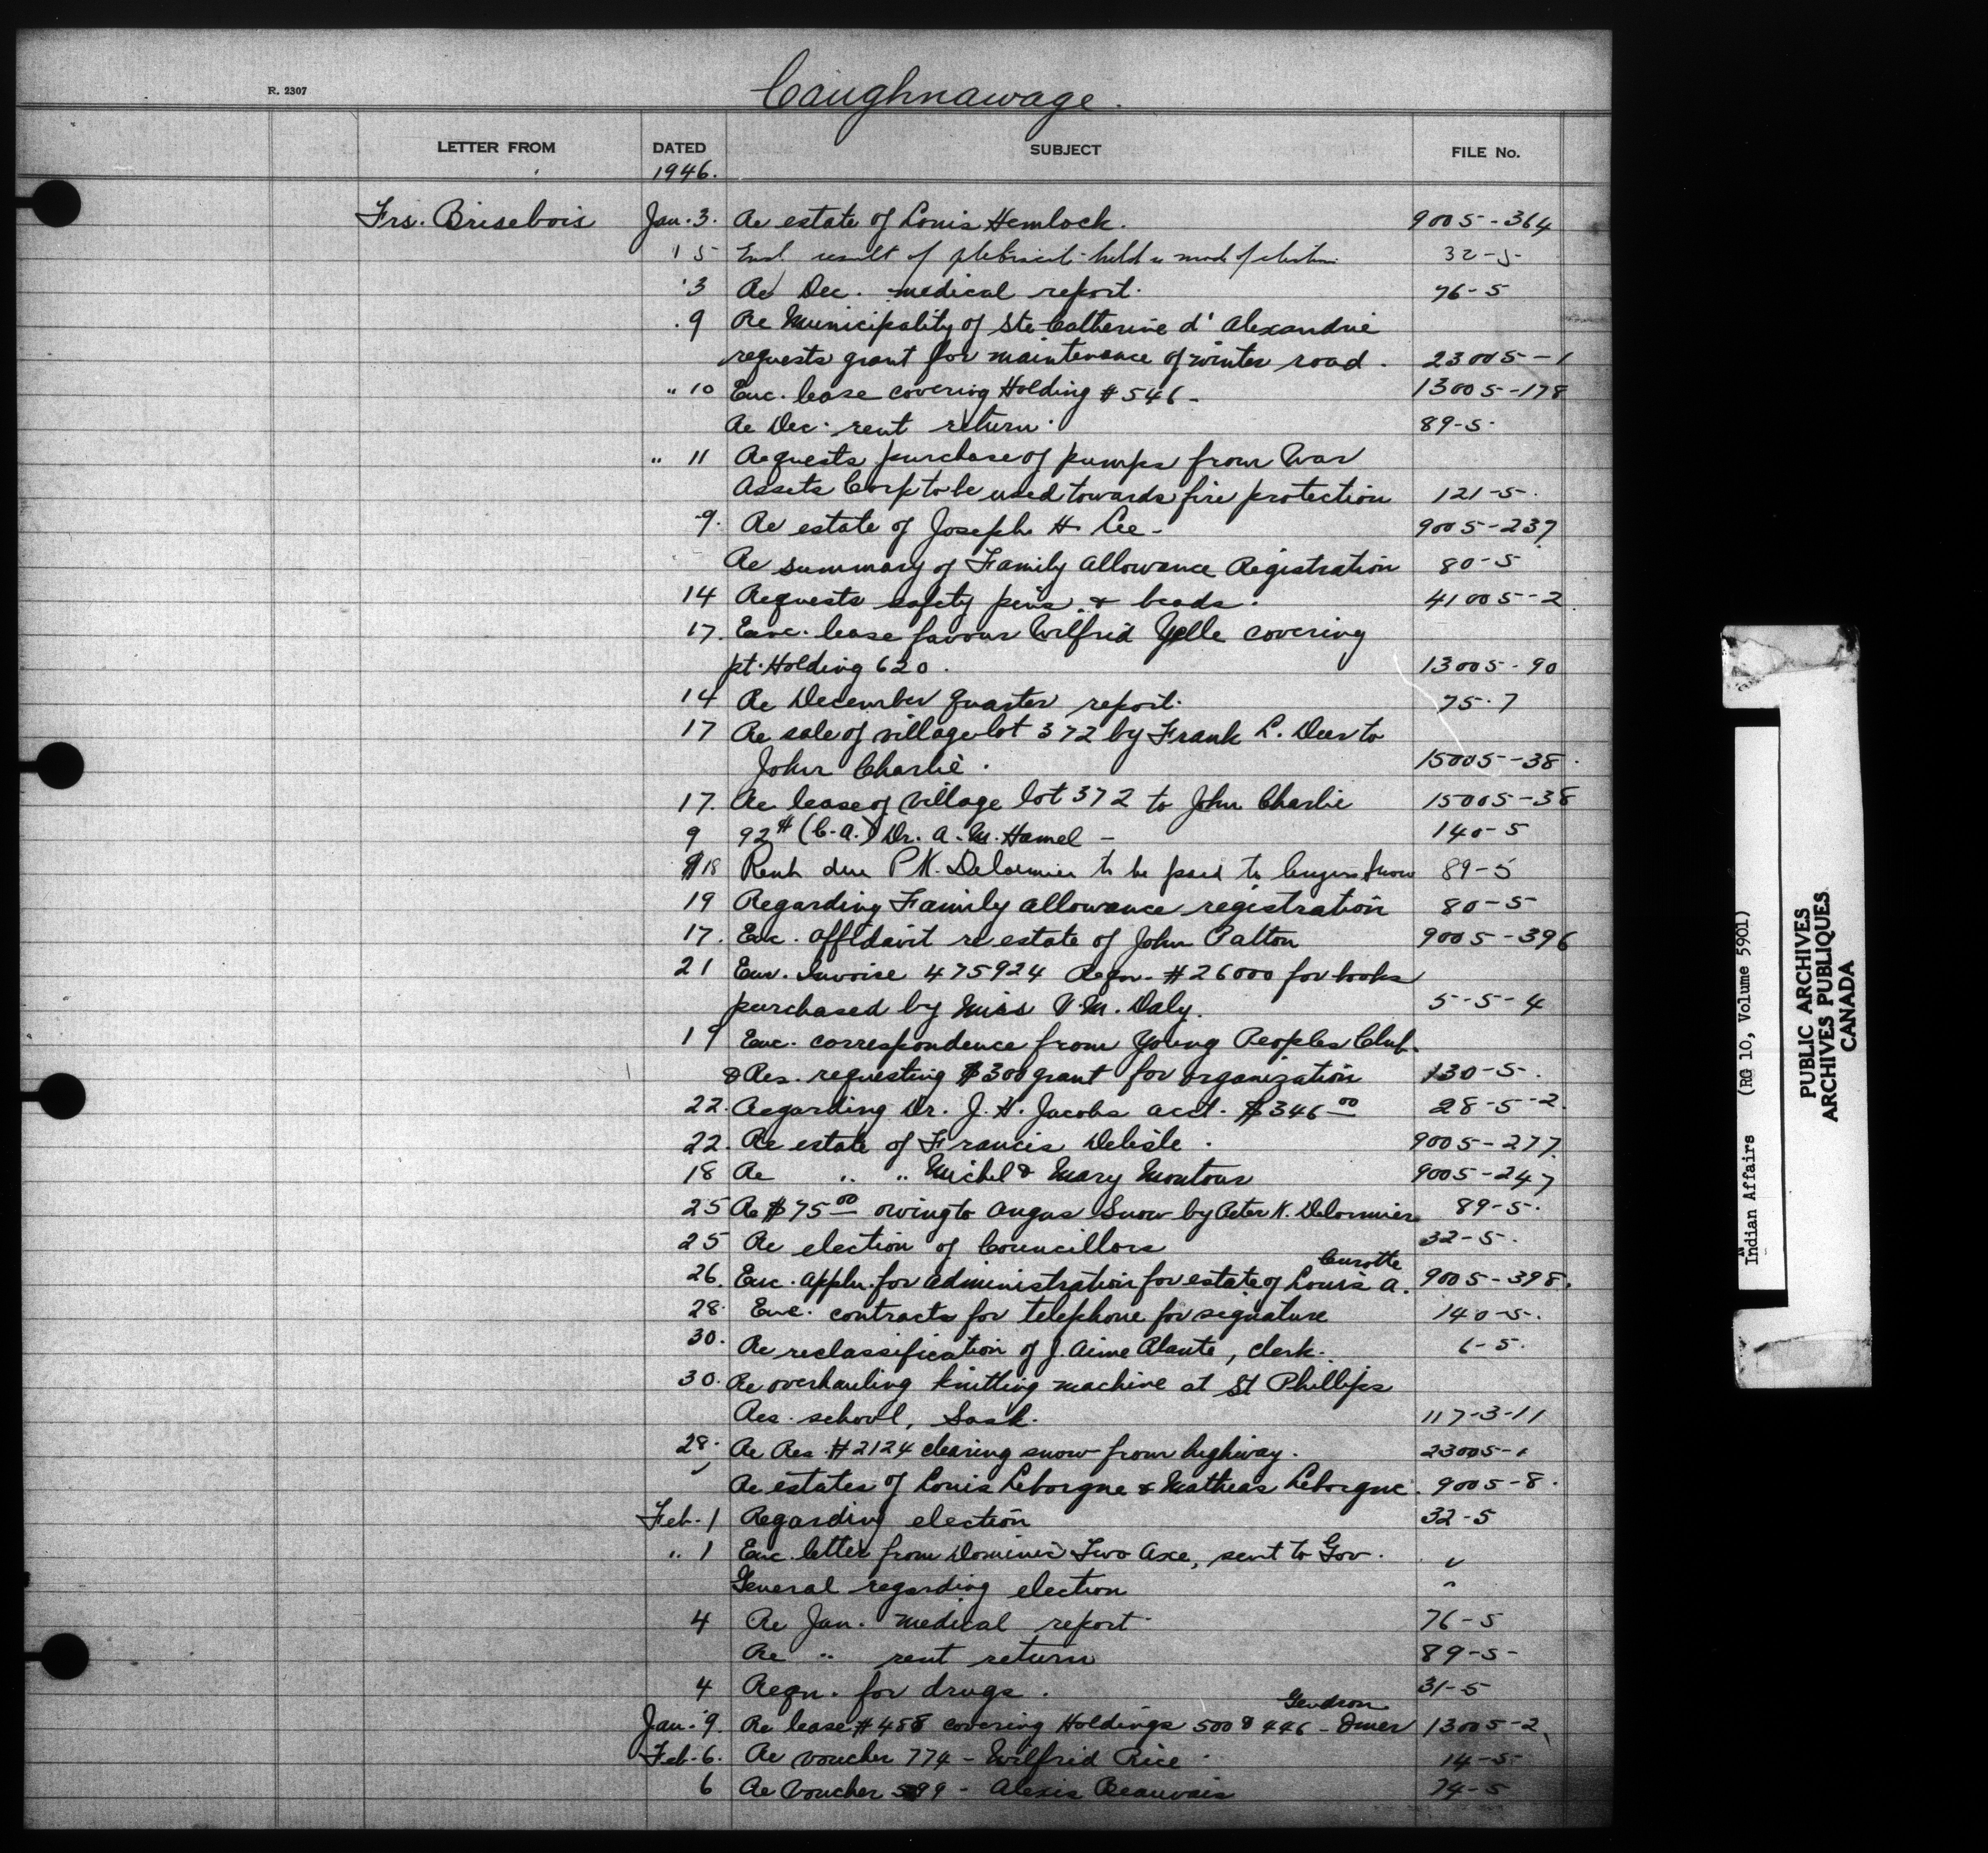 R. 2307
Caughnawage.
LETTER FROM DATED SUBJECT FILE No.
1946.
Frs. Brisebois Jan. 3. Re estate of Louis Hemlock. 9005-364
15 Encl. result of plebiscite held re mode of election 32-5
3 Re Dec. medical report. 76-5
9 Re Municipality of Ste Catherine d'Alexandrie
requests grant for maintenance of winter road. 23005-1
" 10 Enc. lease covering Holding #546- 13005-178
Re Dec. rent return. 89-5.
" 11 Requests purchase of pumps from War
Assets Corp to be used towards fire protection 121-5.
9. Re estate of Joseph H Lee- 9005-237
Re summary of Family Allowance Registration 80-5
14 Requests safety pins & beads. 41005-2
17. Enc. lease favour Wilfrid Yelle covering
pt. Holding 620. 13005-90
14 Re December Quarter report. 75.7
17 Re sale of village lot 372 by Frank L. Deer to
John Charlie. 15005-38.
17. Re lease of village lot 372 to John Charlie 15005-38
9 92# (C.A.) Dr. A.M. Hamel - 140-5
18 Rent due P K. Delormier to be paid to Angus Snow 89-5
19 Regarding Family allowance registration 80-5
17. Enc. affidavit re estate of John Patton 9005-396
21 Enc. Invoice 475924 Reqn. #26000 for books
purchased by Miss V.M. Daly. 5-5-4
19 Enc. correspondence from Young Peoples Club.
& Res. requesting $300 grant for organization 130-5.
22. Regarding Dr. J.H. Jacobs acct. $346.00 28-5-2.
22. Re estate of Francis Delisle. 9005-277.
18 Re " " Michel & Mary Montour 9005-247
25 Re $75.00 owing to Angus Snow by Peter K. Delormier 89-5.
25 Re election of Councillors 32-5.
Curotte
26. Enc. appln. for administration for estate of Louis A. 9005-398.
28. Enc. contracts for telephone for signature 140-5.
30. Re reclassification of J. Aime Plante, clerk. 6-5.
30. Re overhauling knitting machine at St Phillips
Res. school, Sask. 117-3-11
28. Re Res. #2124 clearing snow from highway. 23005-1
" Re estates of Louis Leborgne & Matheas Leborgne. 9005-8.
Feb. 1 Regarding election 32-5
" 1 Enc. letter from Dominic Two Axe, sent to Gov. "
General regarding election "
4 Re Jan. medical report. 76-5
Re " rent return 89-5-
4 Reqn. for drugs. 31-5
Gendron
Jan. 9. Re lease #488 covering Holdings 500 & 446 - Omer 13005-2
Feb. 6. Re voucher 774 - Wilfrid Rice. 14-5
6 Re Voucher 599 - Alexis Beauvais 74-5
Indian Affairs (RG 10, Volume 5901)
PUBLIC ARCHIVES
ARCHIVES PUBLIQUES
CANADA